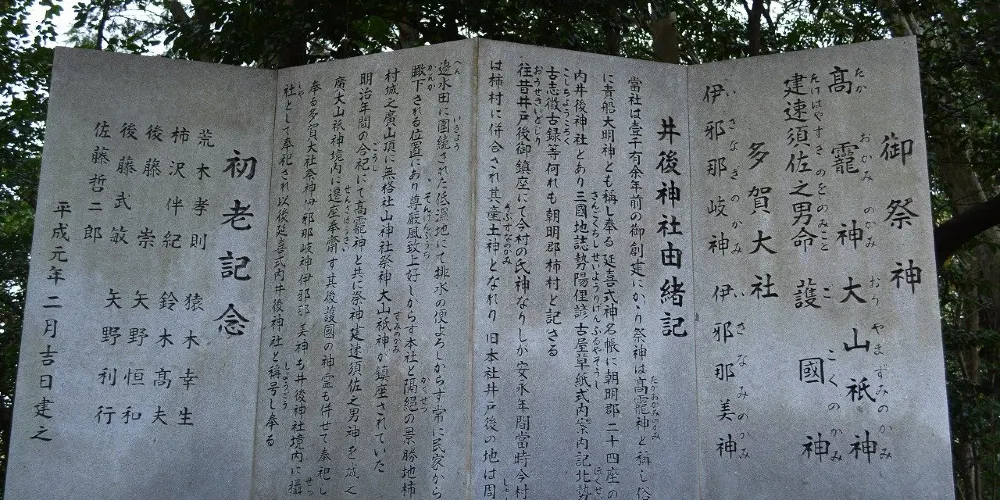 御祭神
高龗神 大山祇神
建速須佐之男命 護國神
多賀大社
伊邪那岐神 伊邪那美神
井後神社由緒記
當社は壹千有余年前の御創建にかゝり祭神は高龗神と稱し俗
に青船大明神とも稱し奉る 延喜式神名帳に朝明郡二十四座の
内井後神社とあり三國地誌勢陽俚諺古屋草紙式内案内記北勢
古志徴古録等何れも朝明郡柿村と記さる
往昔井戸後御鎮座にて今村の氏神なりしが安永年間當時今村
は柿村に併合され其産土神となれり 旧本社井戸後の地は周
邉水田に囲繞された低濕地にて排水の便よろしからず常に民家から
瞰下される位置にあり尊厳風致上好しからず本社と隔絶の景勝地柿
村城之廣山頂に無格社山神社祭神大山祇神が鎮座されていた
明治年間の合祀にて高龗神と共に祭神建速須佐之男神を
廣大山祇神境内に遷座奉斎す其後護國の神霊も併せて奉祀し
奉る多賀大社祭神伊邪那岐神伊邪那美神も井後神社境内に攝
社として奉祀され以後延喜式内井後神社と稱号し奉る
初老記念
荒木孝則 猿木幸生
柿沢伴紀 鈴木髙夫
後藤崇 矢野恒和
後藤武敏 矢野利行
佐藤哲二郎
平成元年二月吉日建之